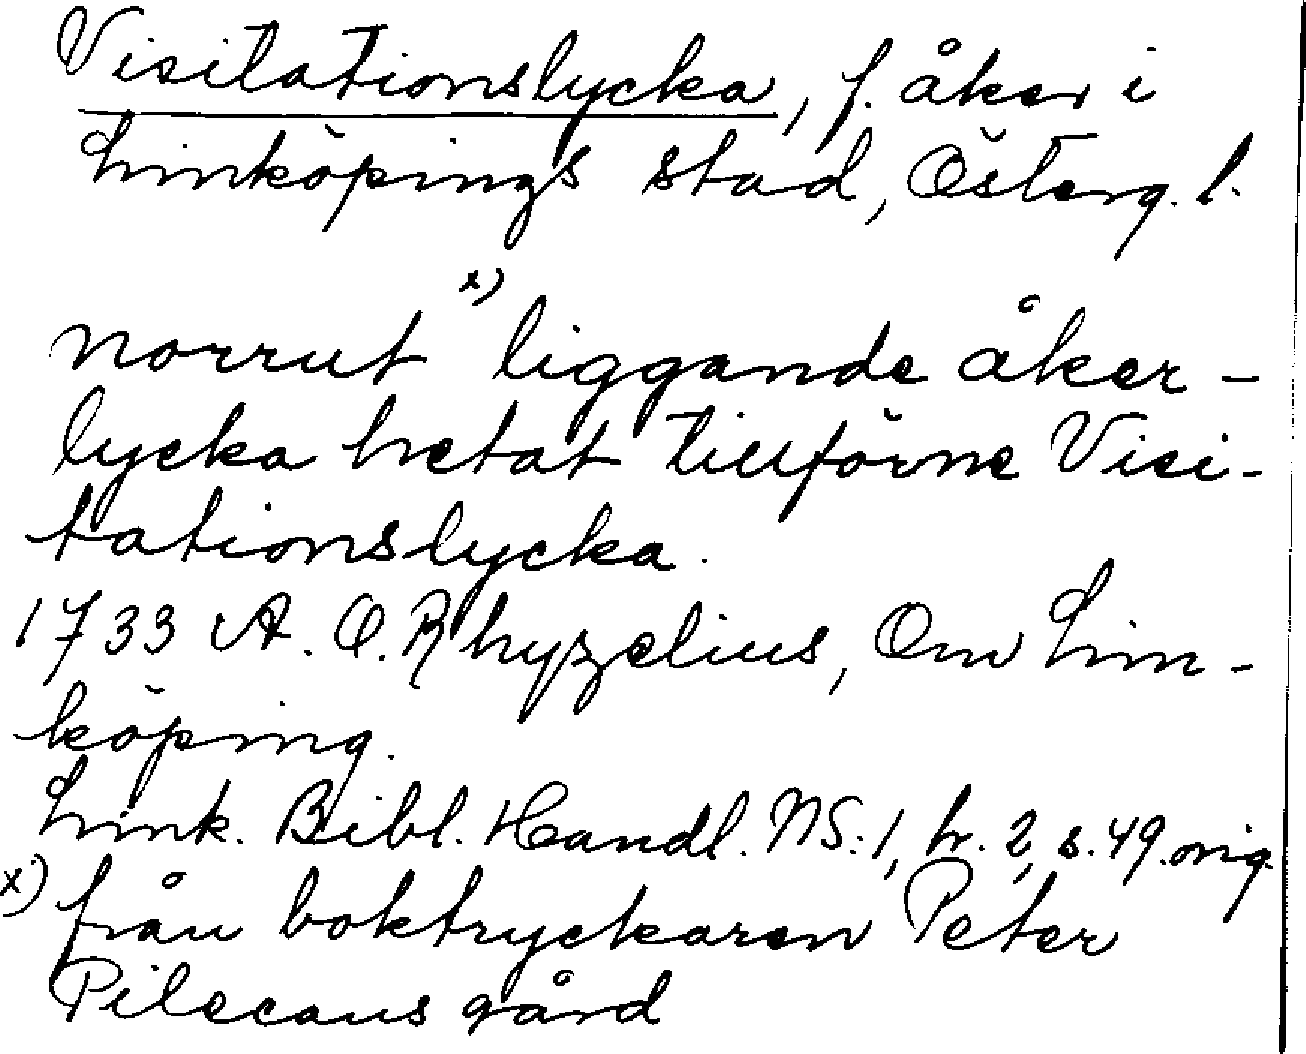 Visitationslycka, f. åker i
Linköpings stad, Österg. l.
norrut x) liggande åker-
lycka hetat tillförne Visi-
tationslycka.
1733 A. O. Rhyzelius, Om Lin-
köping.
Link. Bibl. Handl. NS: 1, h. 2, s. 49. orig.
x) från boktryckaren Peter
Pilecans gård